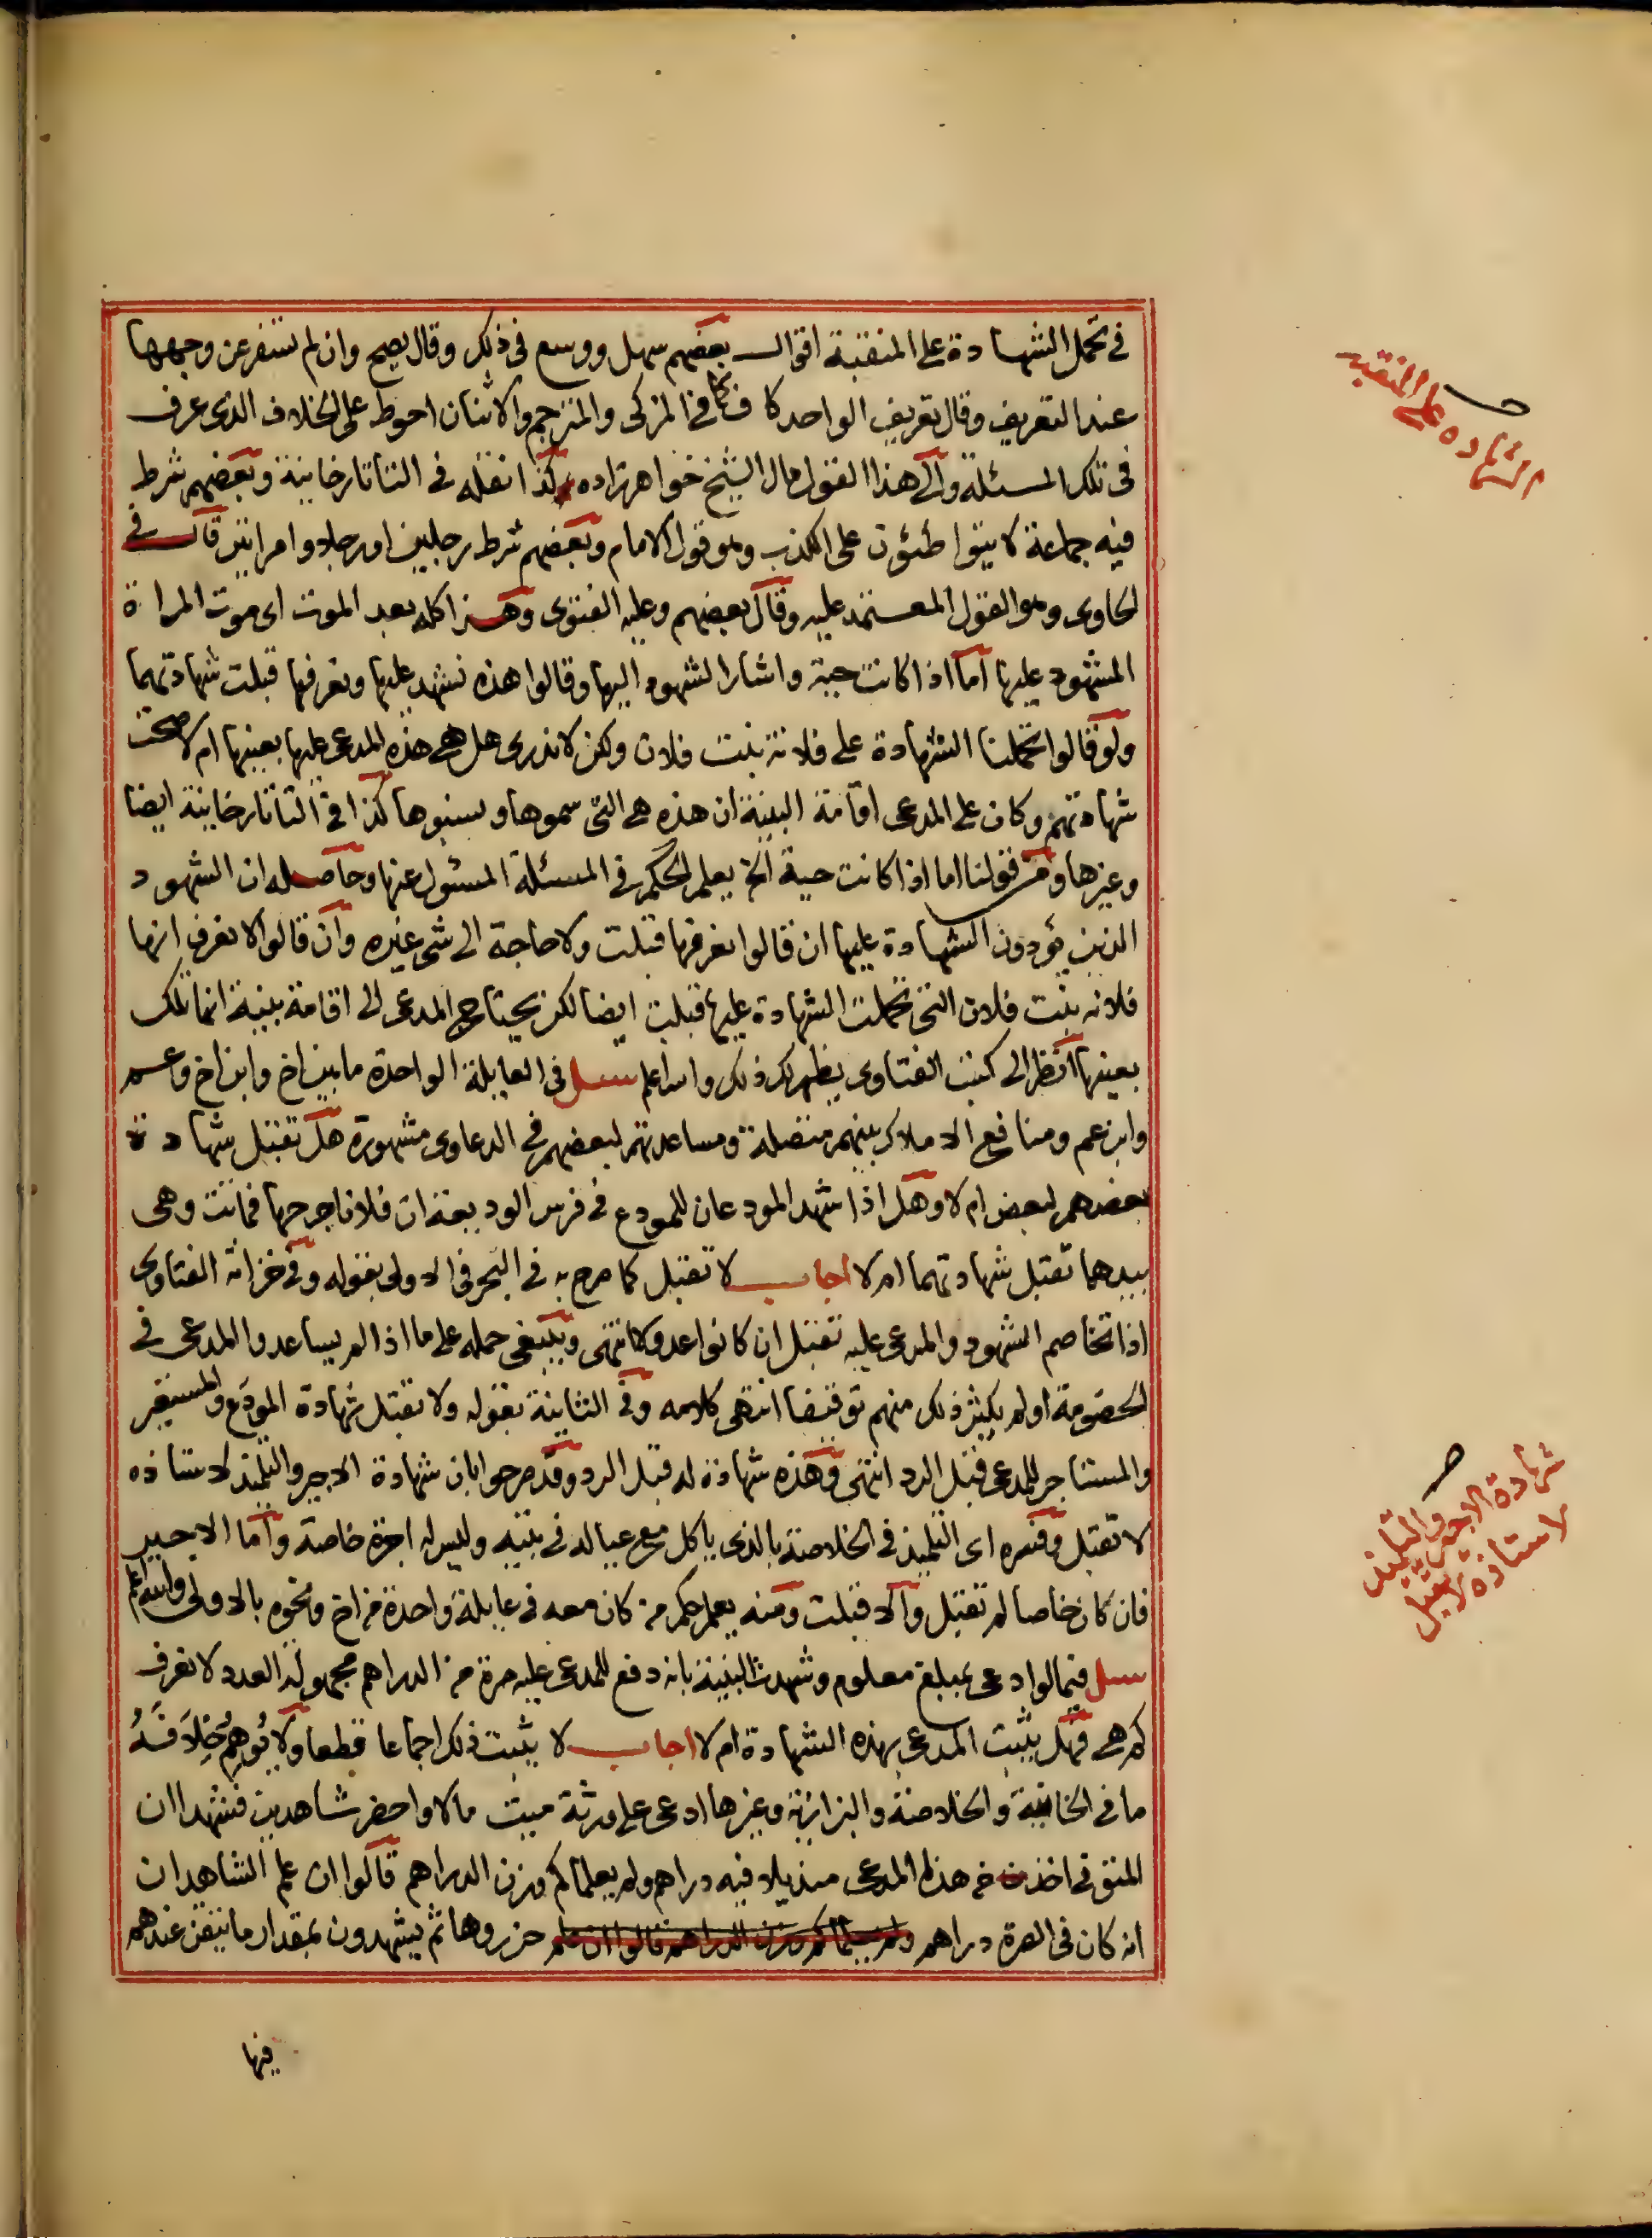 في تحمل الشهادة على المنقبة اقوال بعضهم سهل ووسع في ذلك وقال يصح وان لم تسفر عن وجهها
عند التعريف وقال تعريف الواحد كاف كما في المزكى والمترجم والاثنان احوط على الخلاف الذى عرف
في تلك المسئلة والى هذا القول مال الشيخ خواهرزاده كذا نقله في التاتارخانية وبعضهم شرط
فيه جماعة لا يتواطئون على الكذب وهو قول الامام وبعضهم شرط رجلين او رجلا وامراتين قال في
الحاوى وهو القول المعتمد عليه وقال بعضهم وعليه الفتوى وهذا كله بعد الموت اى موت المراة
المشهود عليها اما اذا كانت حية واشار الشهود اليها وقالوا هذه نشهد عليها ونعرفها قبلت شهادتهما
ولو قالوا تحملنا الشهادة على فلانة بنت فلان ولكن لا ندرى هل هي هذه المدعى عليها بعينها ام لا صحت
شهادتهم وكان على المدعى اقامة البينة ان هذه هي التي سموها ونسبوها كذا في التاتارخانية ايضا
وغيرها ومن قولنا اما اذا كانت حية الخ يعلم الحكم في المسئلة المسئول عنها وحاصله ان الشهود
الذين يؤدون الشهادة عليها ان قالوا نعرفها قبلت ولا حاجة الى شى غيره وان قالوا لا نعرف انها
فلانه بنت فلان التي تحملت الشهادة عليها قبلت ايضا لكن يحتاج المدعى الى اقامة بينة انها تلك
بعينها انظر الى كتب الفتاوى يظهر لك ذلك والله اعلم سئل في العايلة الواحدة ما بين اخ وابن اخ وعم
وابن عم ومنافع الاملاك بينهم متصلة ومساعدتهم لبعضهم في الدعاوى مشهورة هل تقبل شهادة
بعضهم لبعض ام لا وهل اذا شهد المودعان للمودع في فرس الوديعة ان فلانا جرحها فماتت وهى
بيدهما تقبل شهادتهما ام لا اجاب لا تقبل كما صرح به في البحر في الاولى بقوله وفي خزانة الفتاوى
اذا تخاصم الشهود والمدعى عليه تقبل ان كانوا عدولا انتهى وينبغى حمله على ما اذا لم يساعدوا المدعى في
الخصومة او لم يكثر ذلك منهم توفيقا انتهى كلامه وفي الثانية بقوله ولا تقبل شهادة المودَع والمستعير
والمستاجر للمدعى قبل الرد انتهى وهذه شهادة له قبل الرد وقد صرحوا بان شهادة الاجير والتلميذ لاستاذه
لا تقبل وفسره اى التلميذ في الخلاصة بالذى ياكل مع عياله في بيته وليس له اجرة خاصة واما الاجير
فان كان خاصا لم تقبل والا قبلت ومنه يعلم حكم من كان معه في عايلة واحدة من اخ ونحوه بالاولى والله اعلم
سئل فيما لو ادعى بمبلغ معلوم وشهدت البينة بانه دفع للمدعى عليه صرة من الدراهم مجهولة العدد لا نعرف
كم هي فهل يثبت المدعى بهذه الشهادة ام لا اجاب لا يثبت ذلك اجماعا قطعا ولا يُوهِمُ خِلَافَهُ
ما في الخانية والخلاصة والبزازية وغيرها ادعى على ورثة ميت مالا واحضر شاهدين فشهدا ان
المتوفى اخذ من هذا المدعى منديلا فيه دراهم ولم يعلما كم وزن الدراهم قالوا ان علم الشاهدان
انه كان في الصرة دراهم ولم يعلما كم وزن الدراهم قالوا ان علم حزروها ثم يشهدون بمقدار ما تيقن عندهم
فيها
الشهاده على المنقبه
شهادة الاجير والتلميذ
لاستاذه لا تقبل